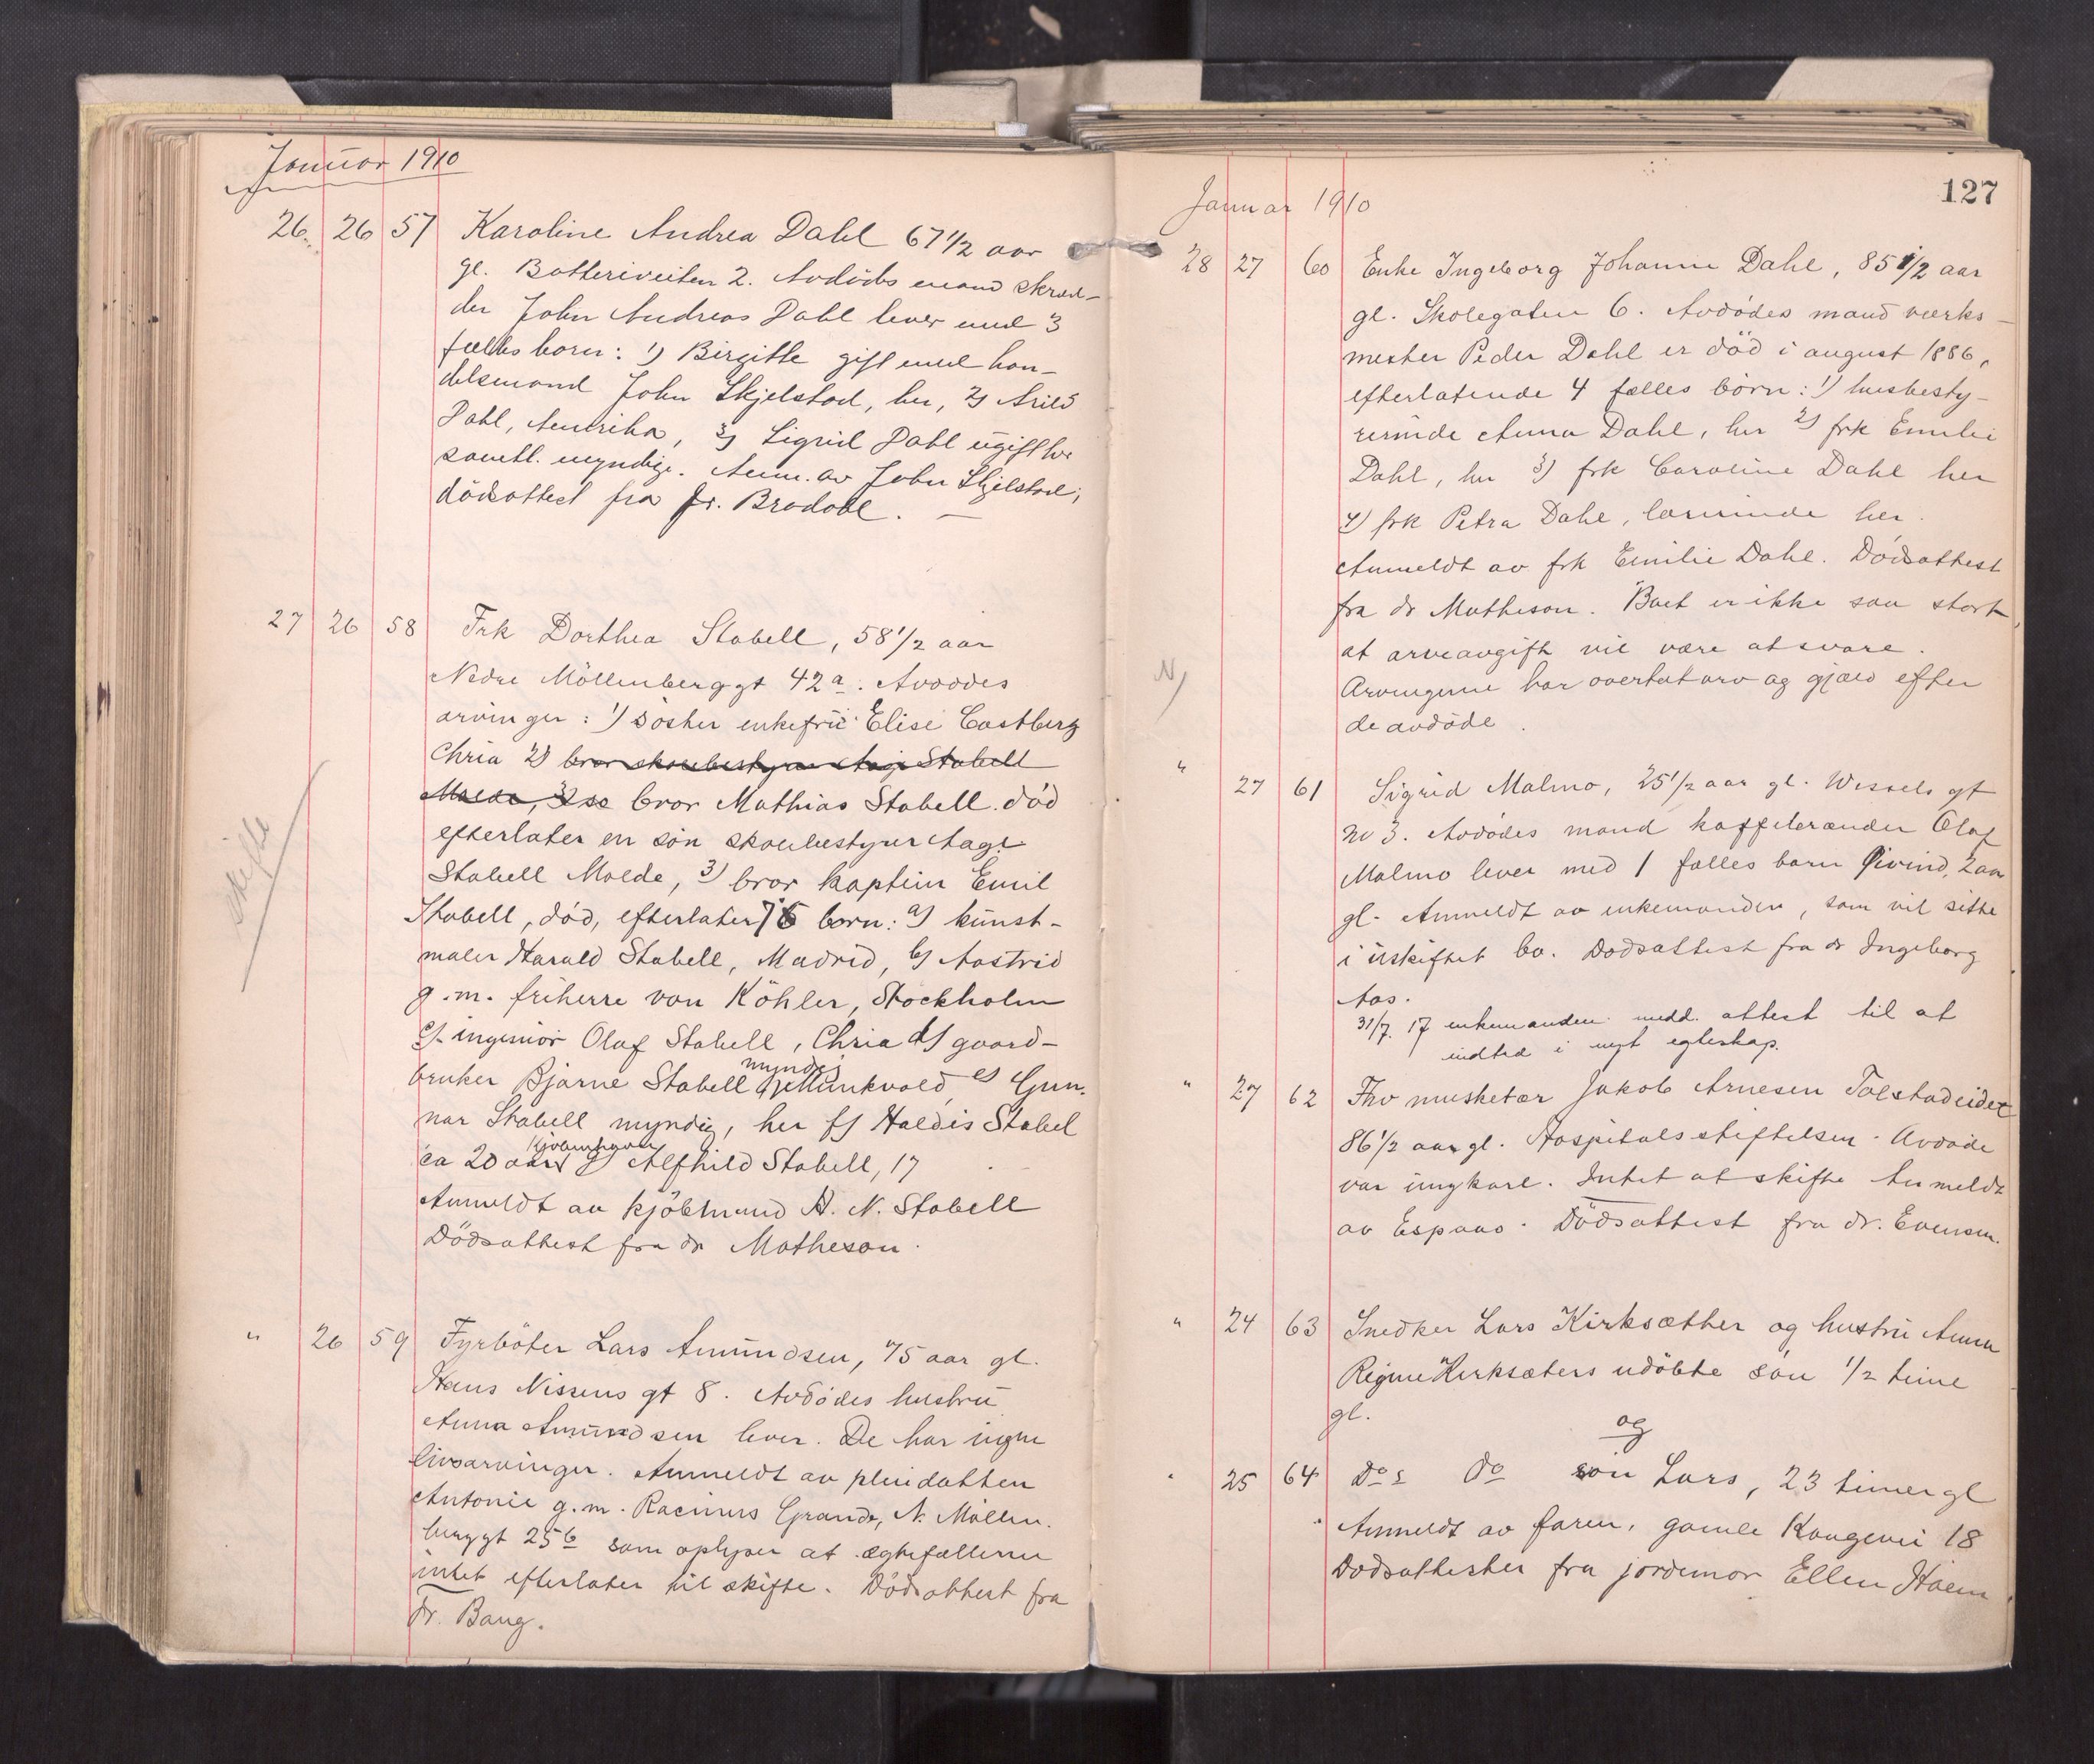 Januar 1910
26. 26 57 Karoline Andrea Dahl 67 1/2 aar
gl. Batteriveiten 2. Avdödes mand skræd-
der John Andreas Dahl lever med 3
fælles born: 1) Birgitte gift med han-
delsmand John Skjelstad, her, 2) Arild
Dahl, Amerika, 3) Sigrid Dahl ugift her
samtl. myndige. Anm. av John Skjelstad;
dödsattest fra dr. Bradahl. —
27 26 58 Frk Dorthea Stabell, 58 1/2 aar
Nedre Möllenberggt 42a. Avdödes
arvinger: 1) söster enkefru Elise Castberg
Chria 2) bror skolebestyrer Aage Stabell
Molde, 3) se bror Mathias Stabell död
efterlater en sön skolebestyrer Aage
Stabell Molde, 3) bror kaptein Emil
Stabell, död, efterlater 7 born: a) kunst-
maler Harald Stabell, Madrid, b) Aastrid
g.m. friherre von Köhler, Stockholm
c) ingeniör Olaf Stabell, Chria d) gaard-
myndig
bruker Bjarne Stabell Munkvold, e) Gun-
nar Stabell myndig, her f) Haldis Stabel
Kjöbenhavn
ca 20 aar g) Alfhild Stabell, 17
Anmeldt av kjöbmand A. N. Stabell
Dödsattest fra dr Matheson.
skifte
" 26 59 Fyrböter Lars Amundsen, 75 aar gl.
Hans Nissens gt 8. Avdödes hustru
Anna Amundsen lever. De har ingen
livsarvinger. Anmeldt av pleiedatten
Antonie g.m. Rasmus Grande, N. Möllen-
berggt 25b som oplyser at ægtefællerne
intet efterlater til skifte. Dödsattest fra
dr. Bang.
127
Januar 1910
28 27 60 Enke Ingeborg Johanne Dahl, 85 1/2 aar
gl. Skolegaten 6. Avdödes mand værks-
mester Peder Dahl er död i august 1886,
efterlatende 4 fælles börn: 1) husbesty-
rerinde Anna Dahl, her 2) frk Emilie
Dahl, her 3) frk Caroline Dahl her
4) frk Petra Dahl, lærerinde her.
Anmeldt av frk Emilie Dahl. Dödsattest
fra dr Matheson. Boet er ikke saa stort,
at arveavgift vil være at svare.
Arvingerne har overtat arv og gjæld efter
de avdöde.
N)
" 27 61 Sigrid Malmo, 25 1/2 aar gl. Wessels gt
no 3. Avdödes mand kaffebrænder Olaf
Malmo lever med 1 fælles barn Øivind, 2 aar
gl. Anmeldt av enkemanden, som vil sitte
i uskiftet bo. Dodsattest fra dr Ingeborg
Aas.
31/7. 17 enkemanden medd. attest til at
indtræ i nyt egteskap.
" 27 62 Fhv musketær Jakob Arnesen Tolstadeidet
86 1/2 aar gl. Hospitalsstiftelsen. Avdöde
var ungkarl. Intet at skifte Anmeldt
av Espaas. Dödsattest fra dr. Evensen.
" 24 63 Snedker Lars Kirksæther og hustru Anna
Regine Kirksæters udöbte sön 1/2 time
gl.
og
" 25 64 Do s do sön Lars, 23 timer gl
Anmeldt av faren, gamle Kongevei 18
Dodsattester fra jordemor Ellen Hoem